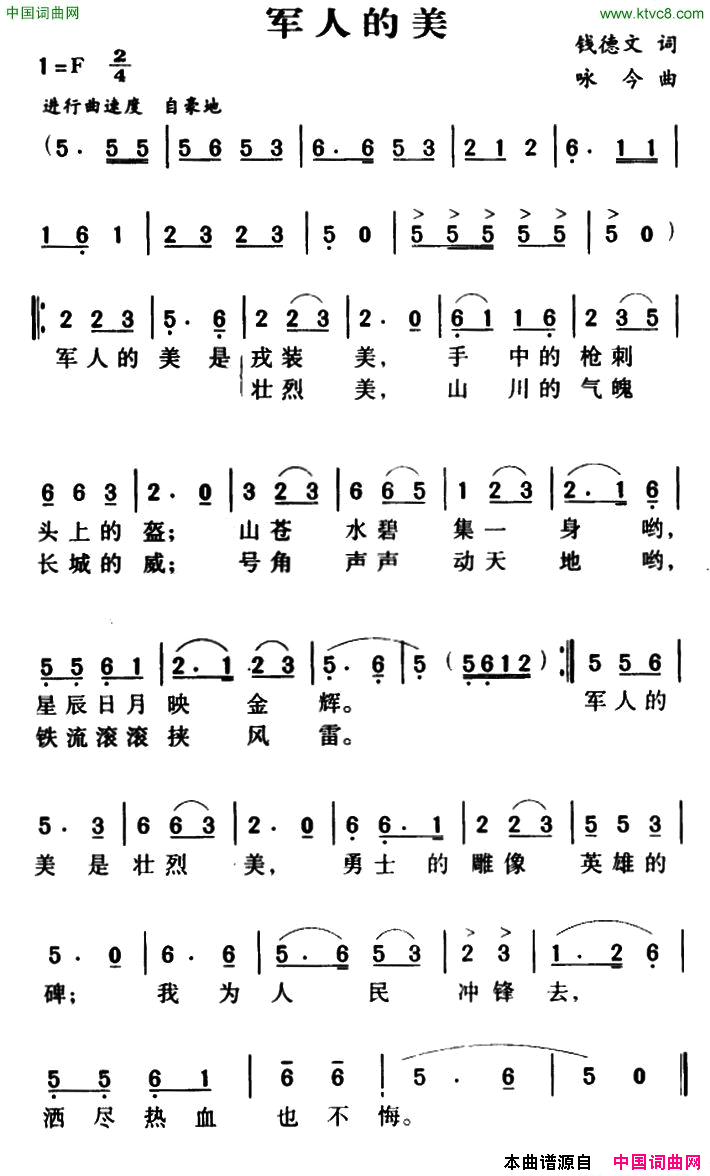 中国词曲网
www.ktvc8.com
军人的美
钱德文 词
1=F 2/4
咏今 曲
进行曲速度 自豪地
(5. 55 | 56 53 | 6. 6 53 | 21 2 | 6. 11 |
16 1 | 23 23 | 5 0 | 5 55 55 | 5 0)
2 23 | 5. 6 | 2 23 | 2. 0 | 61 16 | 2 35
军人的美是戎装美,手中的枪刺
壮烈美,山川的气魄
6 6 3 | 2. 0 | 3 23 | 6 65 | 1 23 | 2. 1 6 |
头上的盔;山苍水碧集一身哟,
长城的威;号角声声动天地哟,
55 61 | 2. 1 23 | 5. 6 | 5 (5612) :‖ 5 56
星辰日月映金辉。军人的
铁流滚滚挟风雷。
5. 3 | 6 63 | 2. 0 | 6 6. 1 | 2 23 | 5 5 3 |
美是壮烈美,勇士的雕像英雄的
5. 0 | 6. 6 | 5. 6 53 | 2 3 | 1. 2 6 |
碑;我为人民冲锋去,
55 61 | 6 6 | 5. 6 | 5 0 ‖
洒尽热血也不悔。
本曲谱源自 中国词曲网